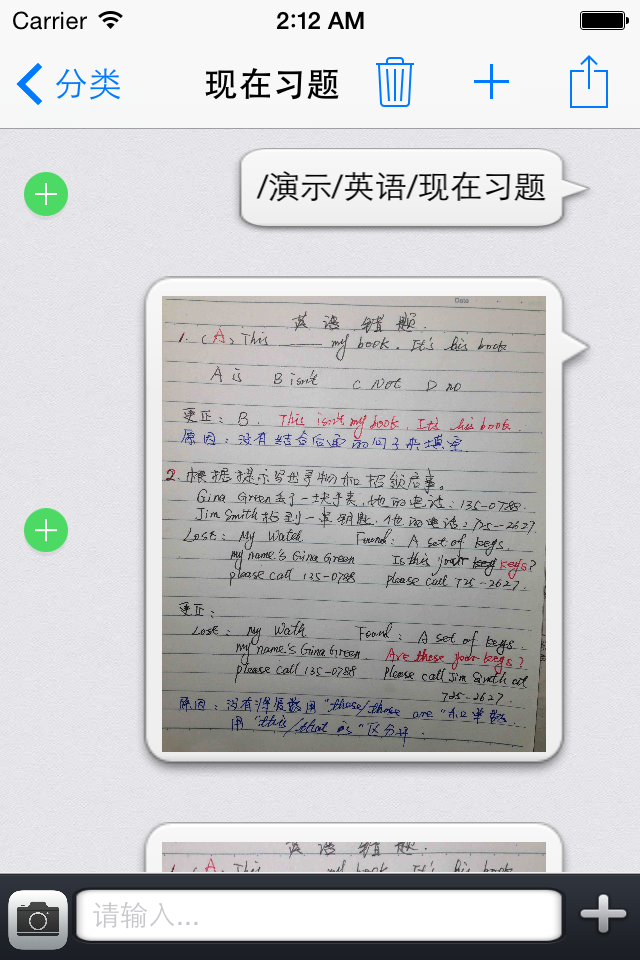 Carrier 2:12 AM
分类 现在习题
/演示/英语/现在习题
Date
英语错题.
1. (A) This ____ my book. It's his book
A is B isn't C Not D no
更正: B. This isn't my book. It's his book.
原因: 没有结合后面的句子来填空.
2. 根据提示写出寻物和招领启事。
Gina Green丢了一块手表, 她的电话: 135-0788.
Jim Smith拾到一串钥匙. 他的电话: 725-2627.
Lost: My Watch Found: A set of keys.
my name's Gina Green Is this your key keys?
please call 135-0788 please call 725-2627.
更正:
Lost: My Wath Found: A set of keys.
my name's Gina Green Are these your keys?
please call 135-0788 Please call Jim Smith at
725-2627.
原因: 没有将复数用"these/those are"和单数
用"this/that is"区分开.
英语错题.
A This my book. It's his book
请输入...